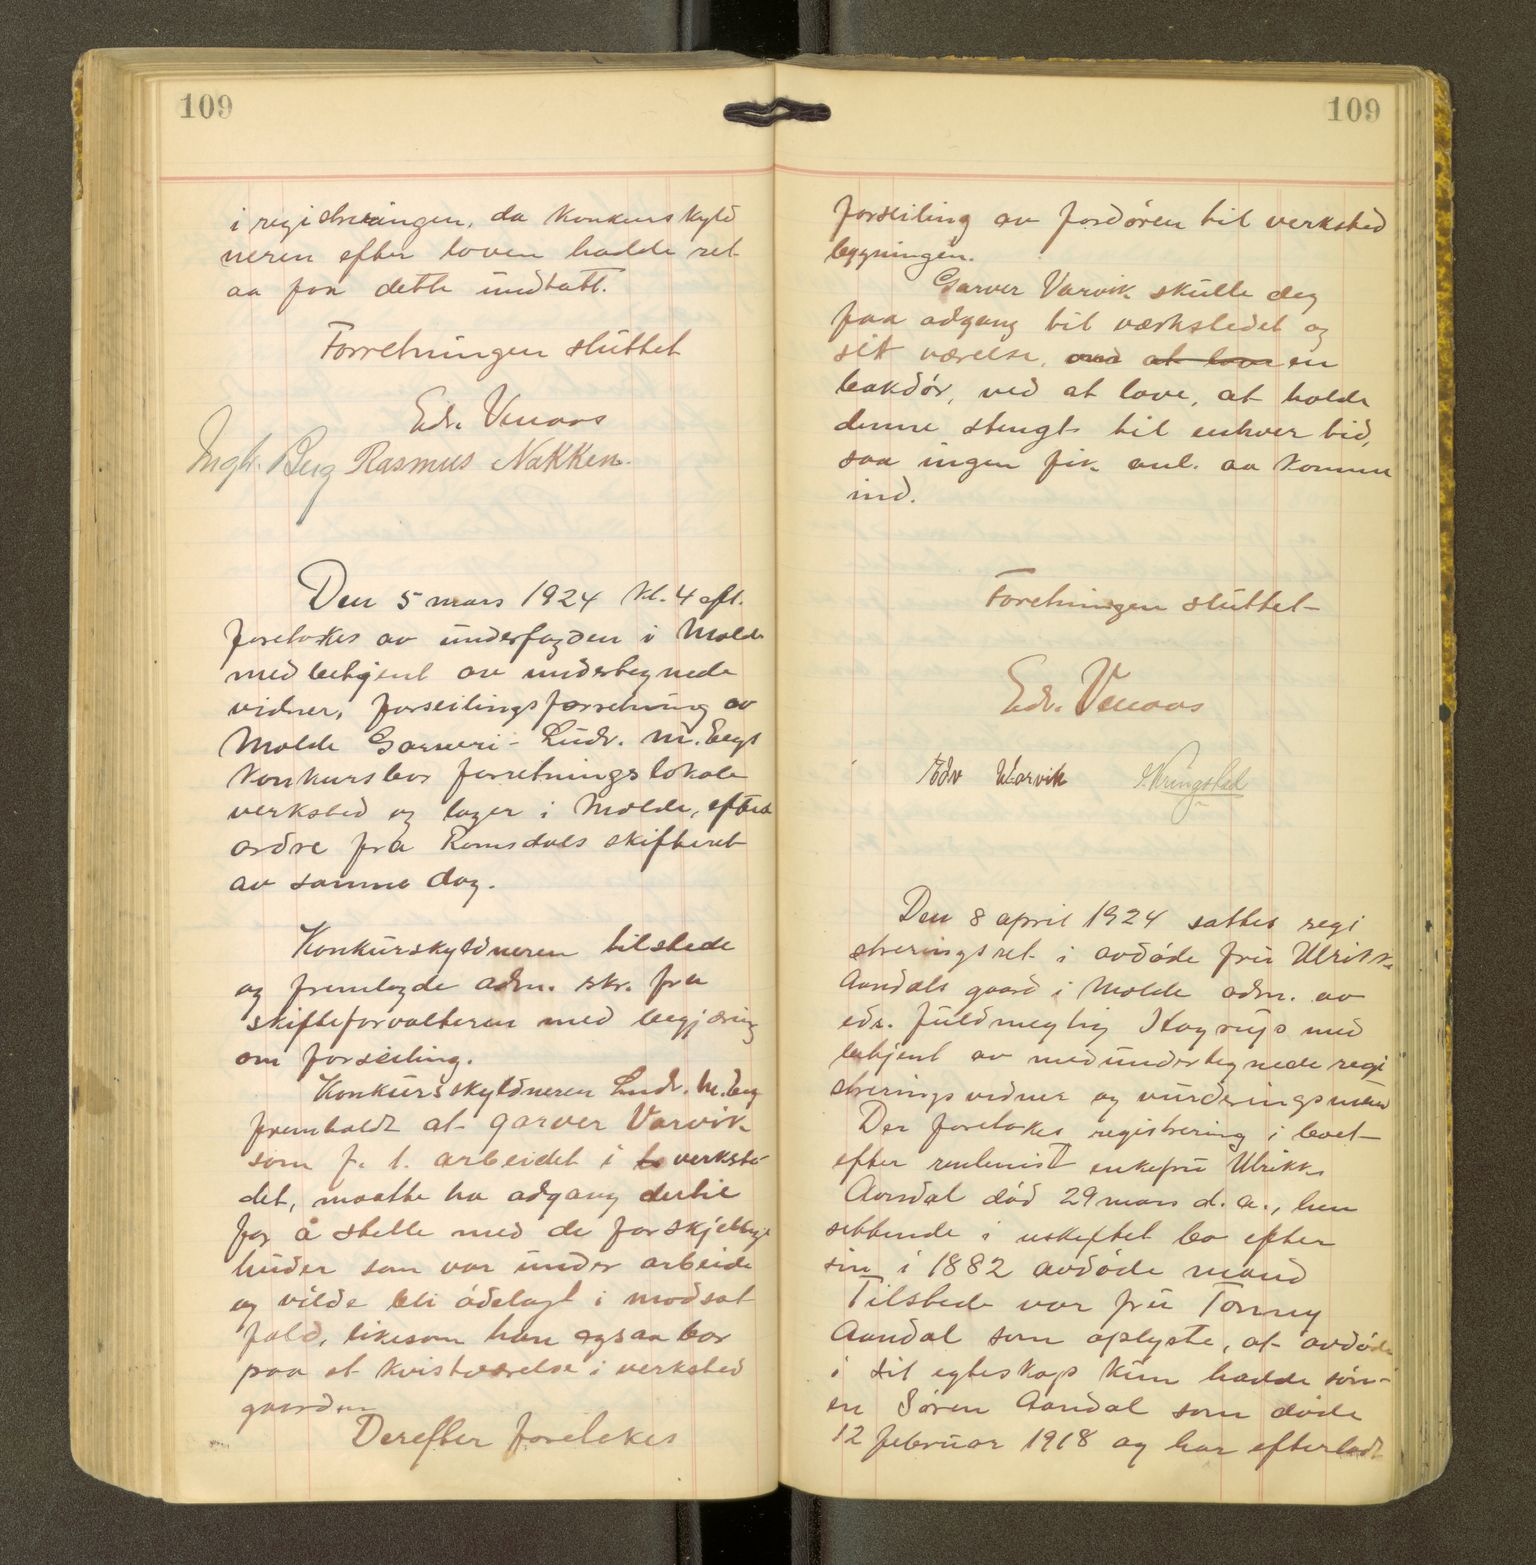 109
i registreringen, da konkursskyld
neren efter loven hadde ret
aa faa dette undtatt.
Forretningen sluttet
Edv. Venaas
Ingb. Berg Rasmus Nakken.
Den 5 mars 1924 kl. 4 eft.
foretokes av underfogden i Molde
med behjent av undertegnede
vidner, forseilingsforretning av
Molde Garveri - Ludv. M. Bergs
konkursbos forretningslokale
verksted og lager i Molde, efter
ordre fra Romsdals skifteret
av samme dag.
Konkurskyldneren tilstede
og fremlagde adm. skr. fra
skifteforvalteren med begjæring
om forseiling.
Konkursskyldneren Ludv. M. Berg
fremholdt at garver Varvik
som f. t. arbeidet i verkste
det, maatte ha adgang dertil
for å stelle med de forskjellige
huder som var under arbeide
og vilde bli ødelagt i modsat
fald, likesom han ogsaa bor
paa et kvistværelse i verksted
gaarden
Derefter foretokes
109
forseiling av fordøren til verksted
bygningen.
Garver Varvik skulle dog
faa adgang til værkstedet og
sit værelse, at love en
bakdør, ved at love, at holde
denne stengt til enhver tid,
saa ingen fik anl. aa komme
ind.
Foretningen sluttet
Edv. Venaas
Edv Warvik Kringstad
Den 8 april 1924 sattes regi
streringsret i avdøde fru Ulrikke
Aandals gaard i Molde adm. av
eds. fuldmegtig Kayrup med
behjent av medundertegnede regi
streringsvidner og vurderingsmænd
Der foretokes registrering i boet
efter enkefru Ulrikke
Aandal død 29 mars d. a., hen
sittende i uskiftet bo efter
sin i 1882 avdøde mand
Tilstede var fru Tonny
Aandal som oplyste, at avdøde
i sit egteskap kun hadde søn-
en Søren Aandal som døde
12 februar 1918 og har efterladt